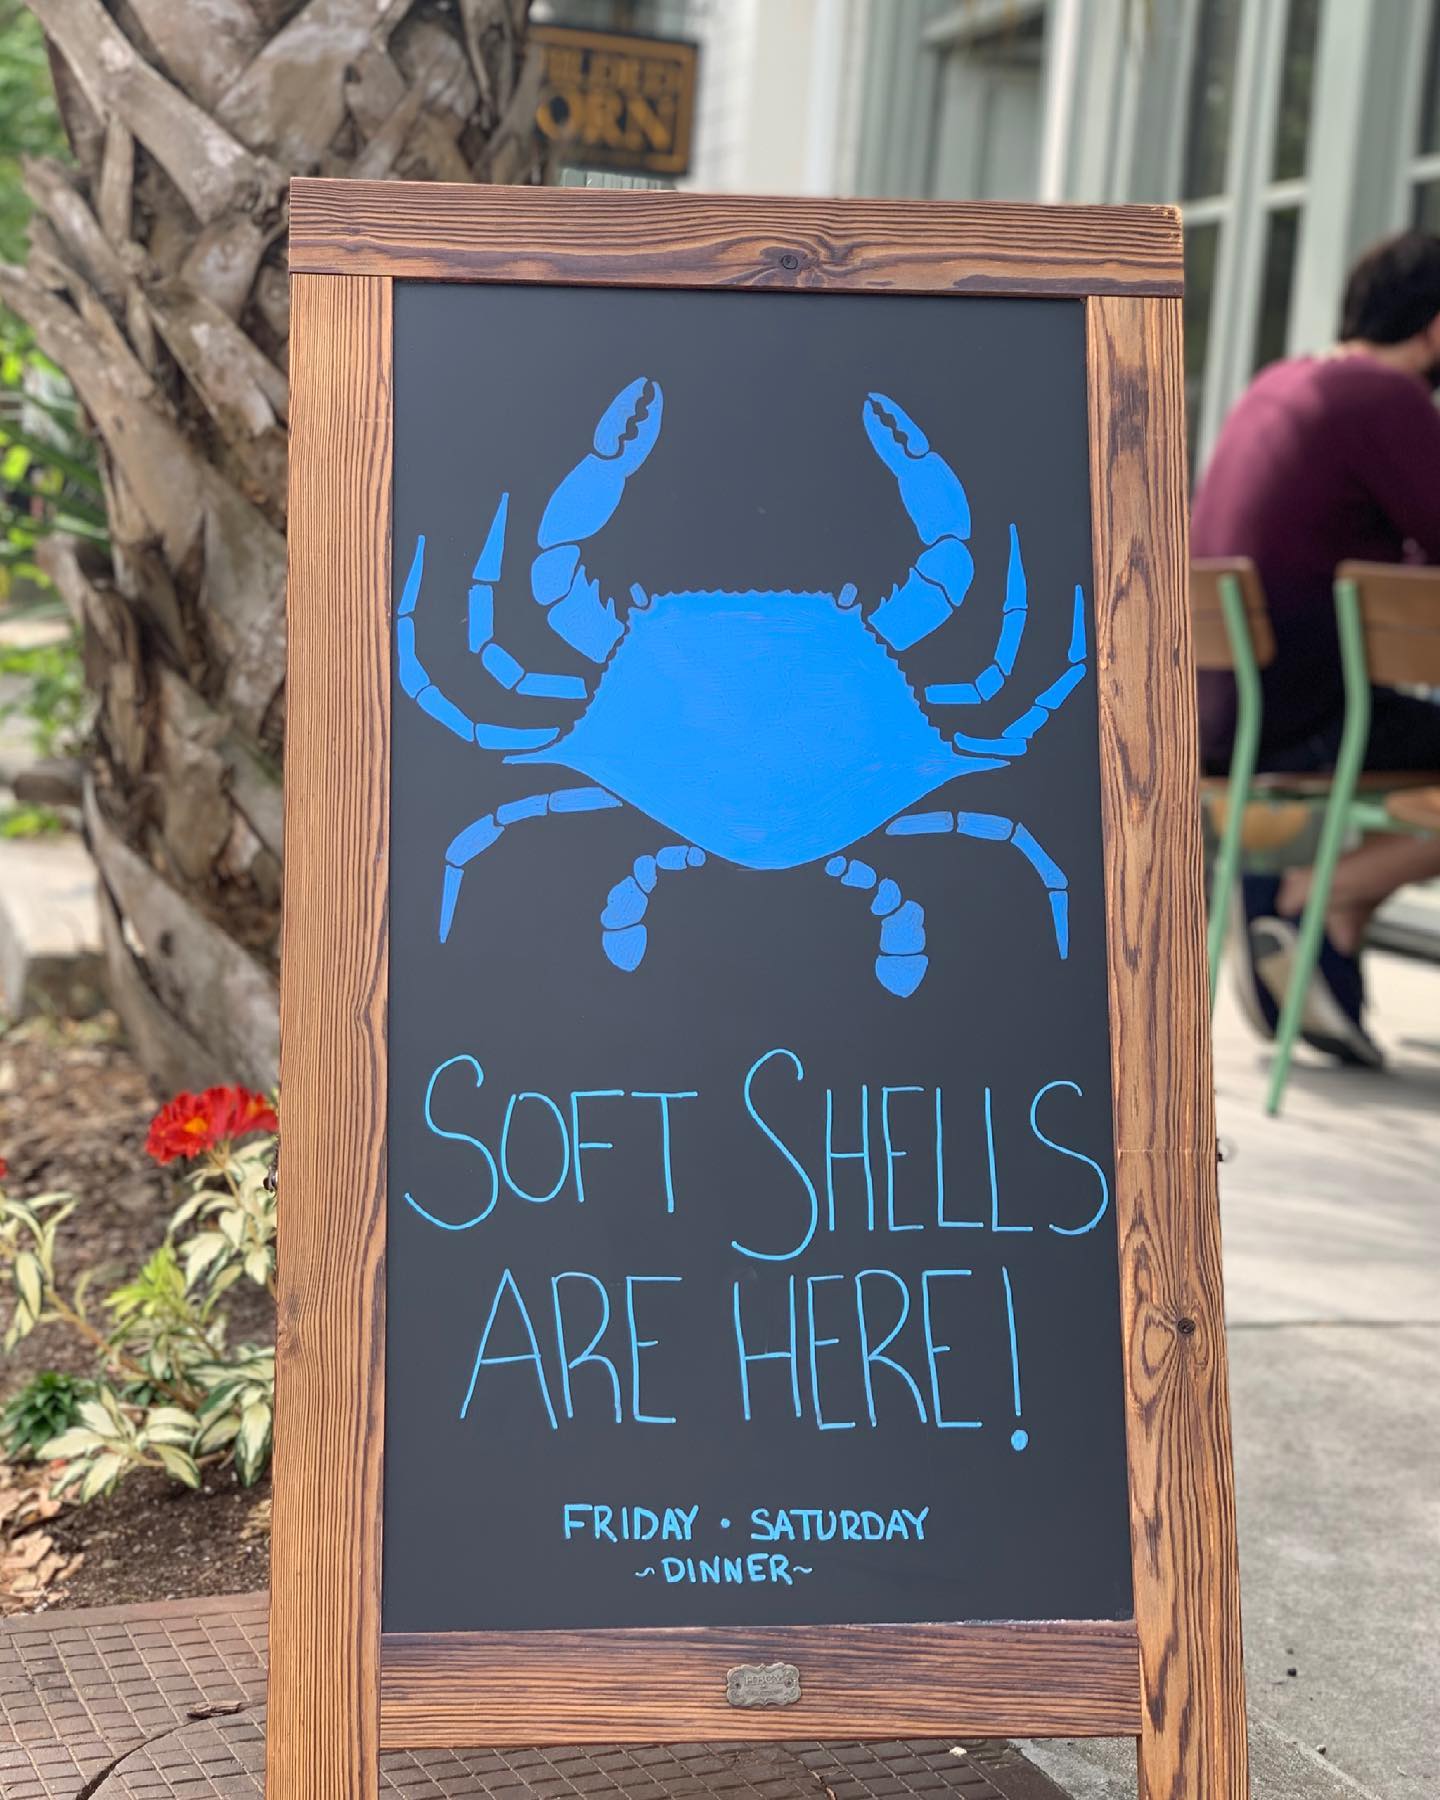 ORN
SOFT SHELLS
ARE HERE!
FRIDAY • SATURDAY
~DINNER~